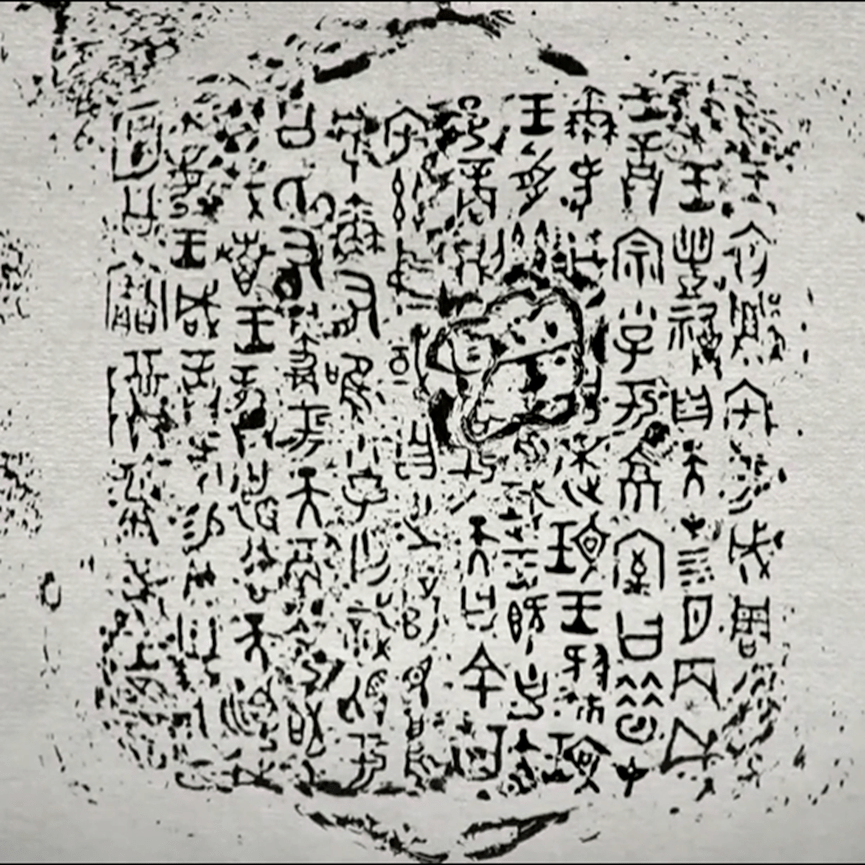 隹王初宅于成周復
王豊福自天才四月丙戌
王誥宗小子于京室曰昔才
爾考公氏克逨玟王肆玟
王受茲隹珷王既克大
邑商則廷告于天曰余其
宅茲中或自之乂民烏
虖爾有唯小子亡識視于
公氏有爵于天徹令敬
享哉叀王龏德谷天訓我
不敏王咸誥何易貝卅朋用乍
公寶尊彝隹王五祀